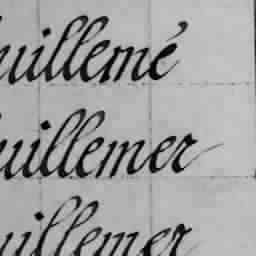 uillemé
uillemer
uillemer